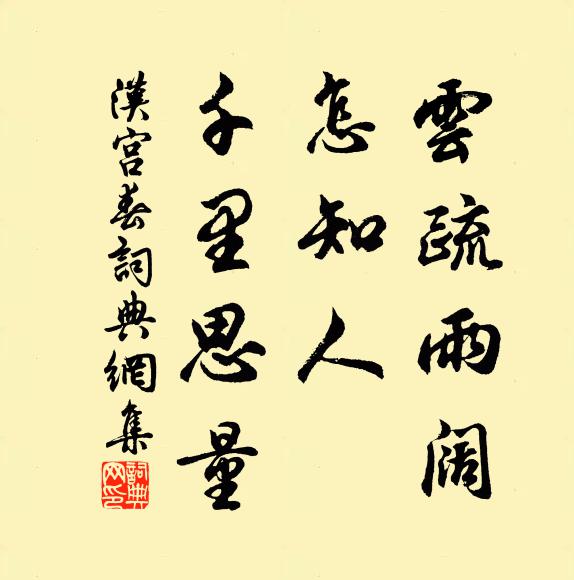 雲疏雨闊
怎知人
千里思量
漢宮春詞典網集
詞典
网印